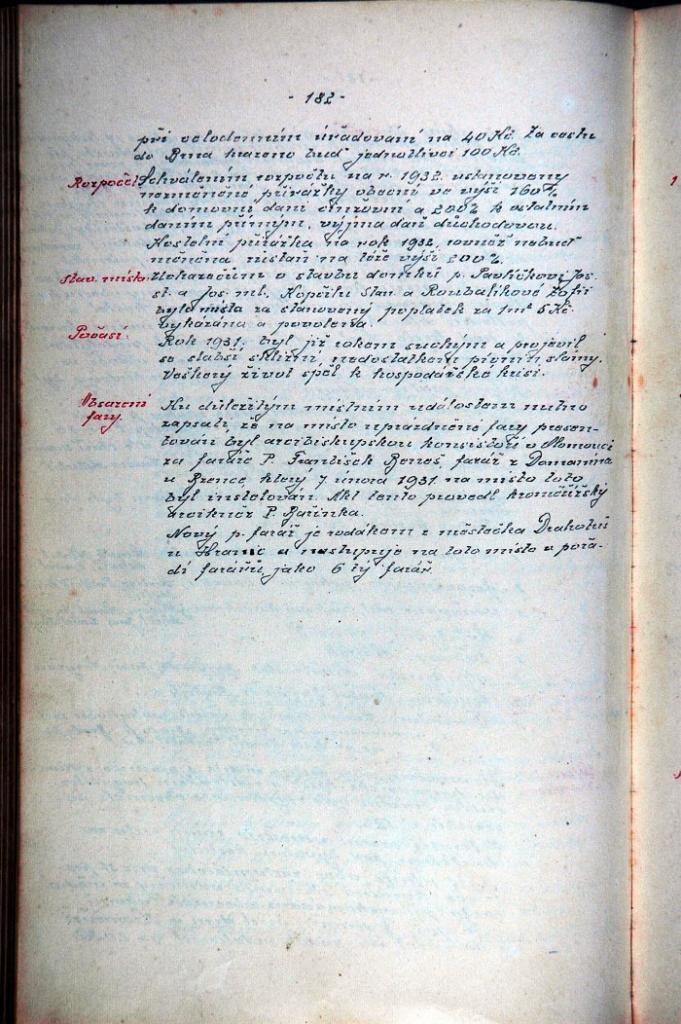 - 182 -
při celodenním úřadování na 40 Kč. Za cestu
do Brna hrazeno buď jednotlivci 100 Kč.
Rozpočet Schválením rozpočtu na r. 1932 ustanoveny
příirážky obecní ve výši 160%
k domovní dani činžovní a 200% k ostatním
daním přímým, vyjma daň důchodovou.
Kostelní přirážka na rok 1932, rovněž nebuď
měněna zůstaň na téže výši 200%.
Stav. místa. Uchazečům o stavbu domků p. Pavlíčkovi Jos.
st. a Jos. ml. Kopřilu Stan. a Roubalíkové Žofii
bylo místo za stanovený poplatek za 1m² 5 Kč.
vykázána a povolena.
Počasí. Rok 1931. byl již rokem suchým a projevil
se slabší sklizní, nedostatkem pícnin slámy.
Veškerý život spěl k hospodářské krisi.
Obsazení Ku důležitým místním událostem nutno
fary. zapsati, že na místo uprázdněné fary presen-
tován byl arcibiskupskou konsistoří v Olomouci
za faráře P. František Beneš, farář z Domanína
u Bzence, který 7 února 1931. na místo toto
byl instalován. Akt tento provedl kroměřížský
P. Bařinka.
Nový p. farář je rodákem z městečka Drahotuš
u Hranic a nastupuje na toto místo v pořa-
dí farářů jako 6 tý farář.